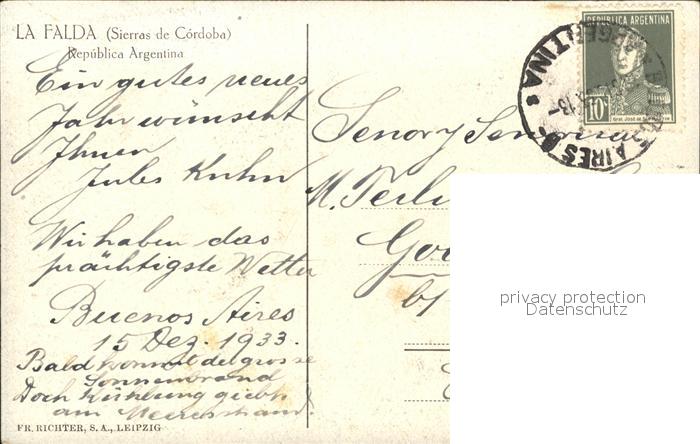 LA FALDA (Sierras de Córdoba)
República Argentina
Ein gutes neues
Jahr wünscht
Ihnen
Jules Kuhn
Wir haben das
prächtigste Wetter
Buenos Aires
15 Dez. 1933.
Bald kommt der grosse
Sonnenbrand
Doch Kühlung giebts
am Meeresstrand.
FR. RICHTER, S. A., LEIPZIG
REPUBLICA ARGENTINA
10
ARGENTINA
AIRES
Señor y Señora
M.
privacy protection
Datenschutz